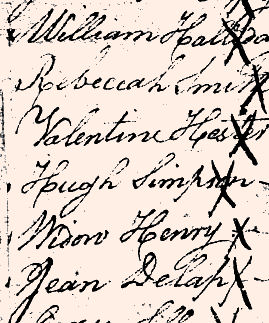 William
Rebeccah Smith
Valentine Hester
Hugh Simpson
Widow Henry
Jean Delap